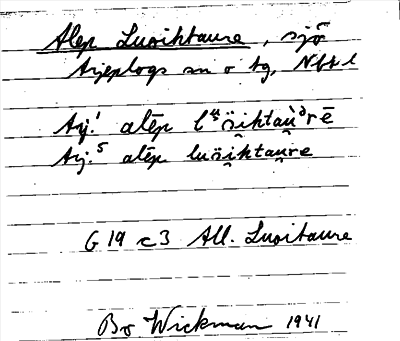 Alep Luoihtaure, sjö
Arjeplogs sn o tg, Nbt l
Arj.¹ alēp lᵘ̯öi̯htau̯ᵊrē
Arj.⁵ alēp luöi̯htau̯re
G 19 c 3 All. Luoitaure
Bo Wickman 1941